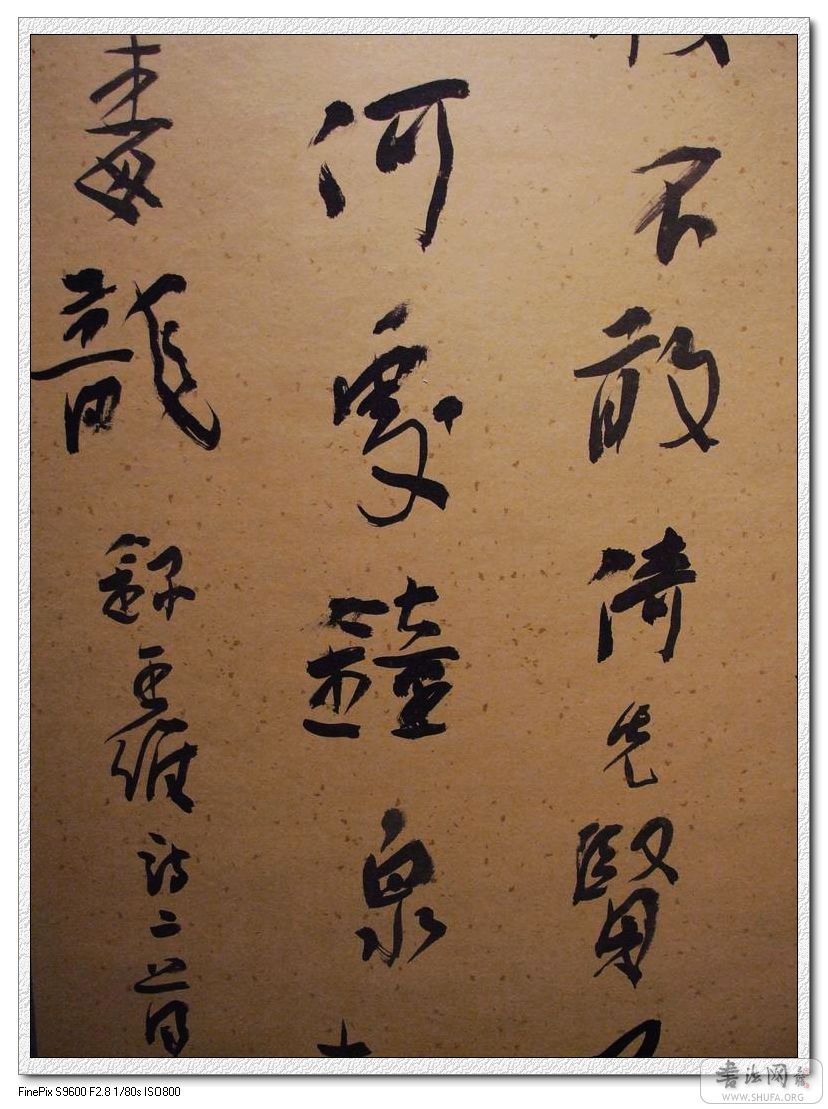 不敢倚先賢
何處鐘泉
毒龍 錄王維詩二首
FinePix S9600 F2.8 1/80s ISO800
書法网
WWW.SHUFA.ORG